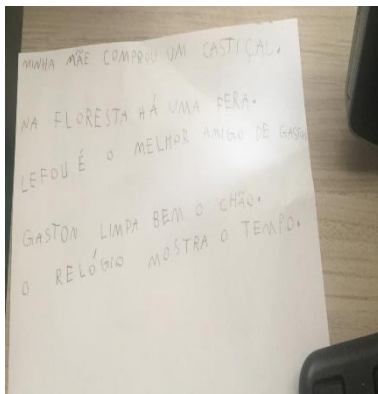 MINHA MÃE COMPROU UM CASTIÇAL.
NA FLORESTA HÁ UMA FERA.
LEFOU É O MELHOR AMIGO DE GASTON
GASTON LIMPA BEM O CHÃO.
O RELÓGIO MOSTRA O TEMPO.